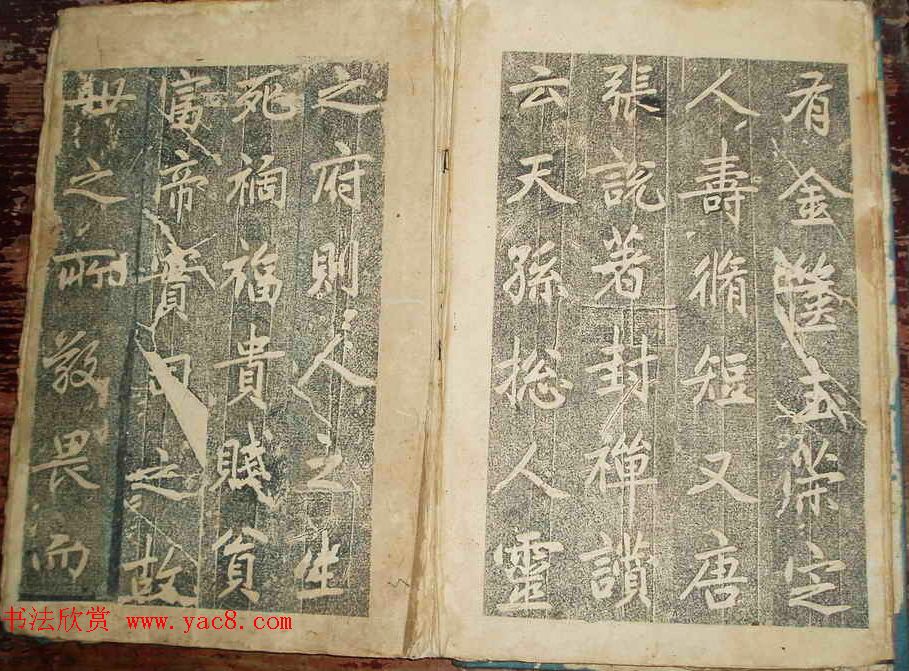 有金篋玉策定
人壽脩短又唐
張說著封禪讃
云天孫揔人靈
之府則人之生
死禍福貴賤貧
富帝實司之故
世之所敬畏而
书法欣赏 www.yac8.com